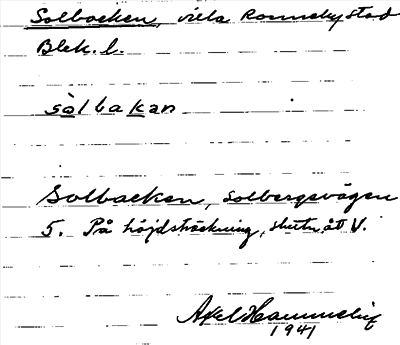 Solbacken, villa Ronneby stad
Blek. l.
sòlbakan
Solbacken, Solbergsvägen
5. På höjdsträckning, slutn. åt V.
Axel Hammelig
1941